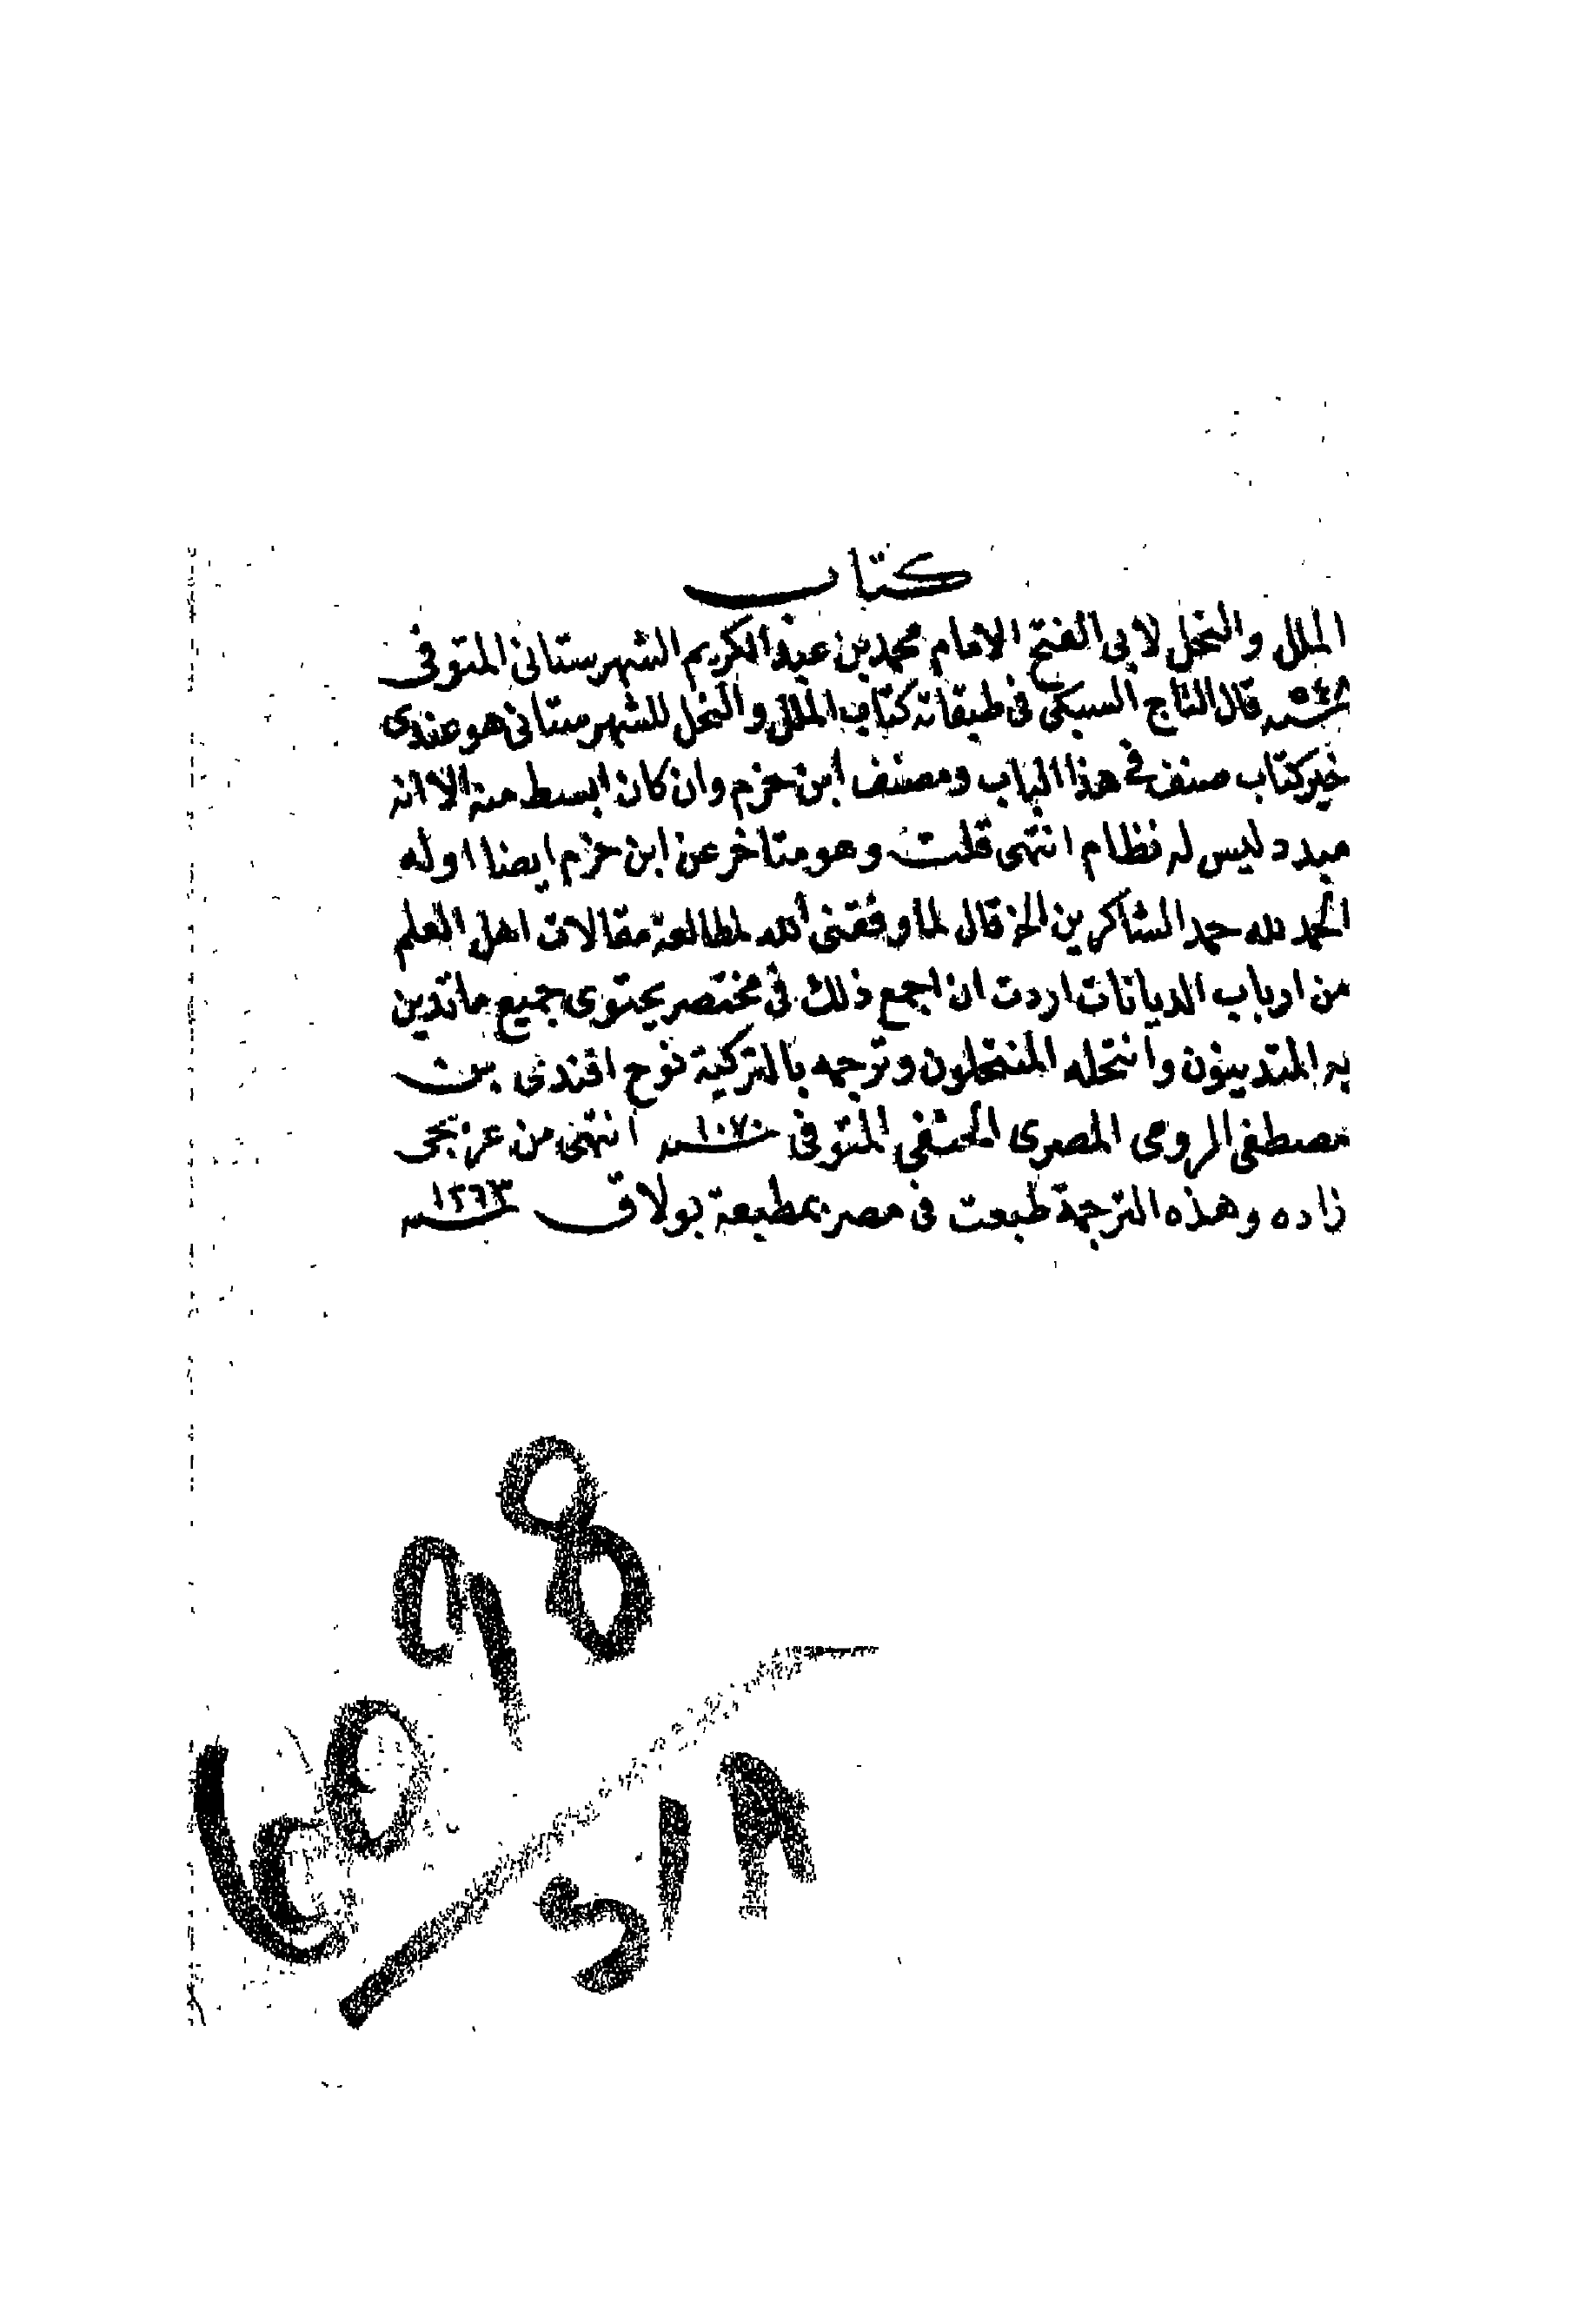 كتاب
الملل والنحل لابى الفتح الامام محمد بن عبد الكريم الشهرستانى المتوفى
سنه ٥٤٨ قال التاج السبكى فى طبقاته كتاب الملل والنحل للشهرستانى هو عندى
خير كتاب صنف فى هذا الباب ومصنف ابن حزم وان كان ابسط منه الا انه
مبدد ليس له نظام انتهى قلت وهو متاخر عن ابن حزم ايضا اوله
الحمد لله حمد الشاكرين الخ قال لما وفقنى الله لمطالعة مقالات اهل العلم
من ارباب الديانات اردت ان اجمع ذلك فى مختصر يحتوى جميع ما تدين
به المتدينون وانتحله المنتحلون وترجمه بالتركية نوح افندى بن
مصطفى الرومى المصرى الحنفى المتوفى سنه ١٠٧٠ انتهى من عربجى
زاده وهذه الترجمة طبعت فى مصر بمطبعة بولاق سنه ١٢٦٣